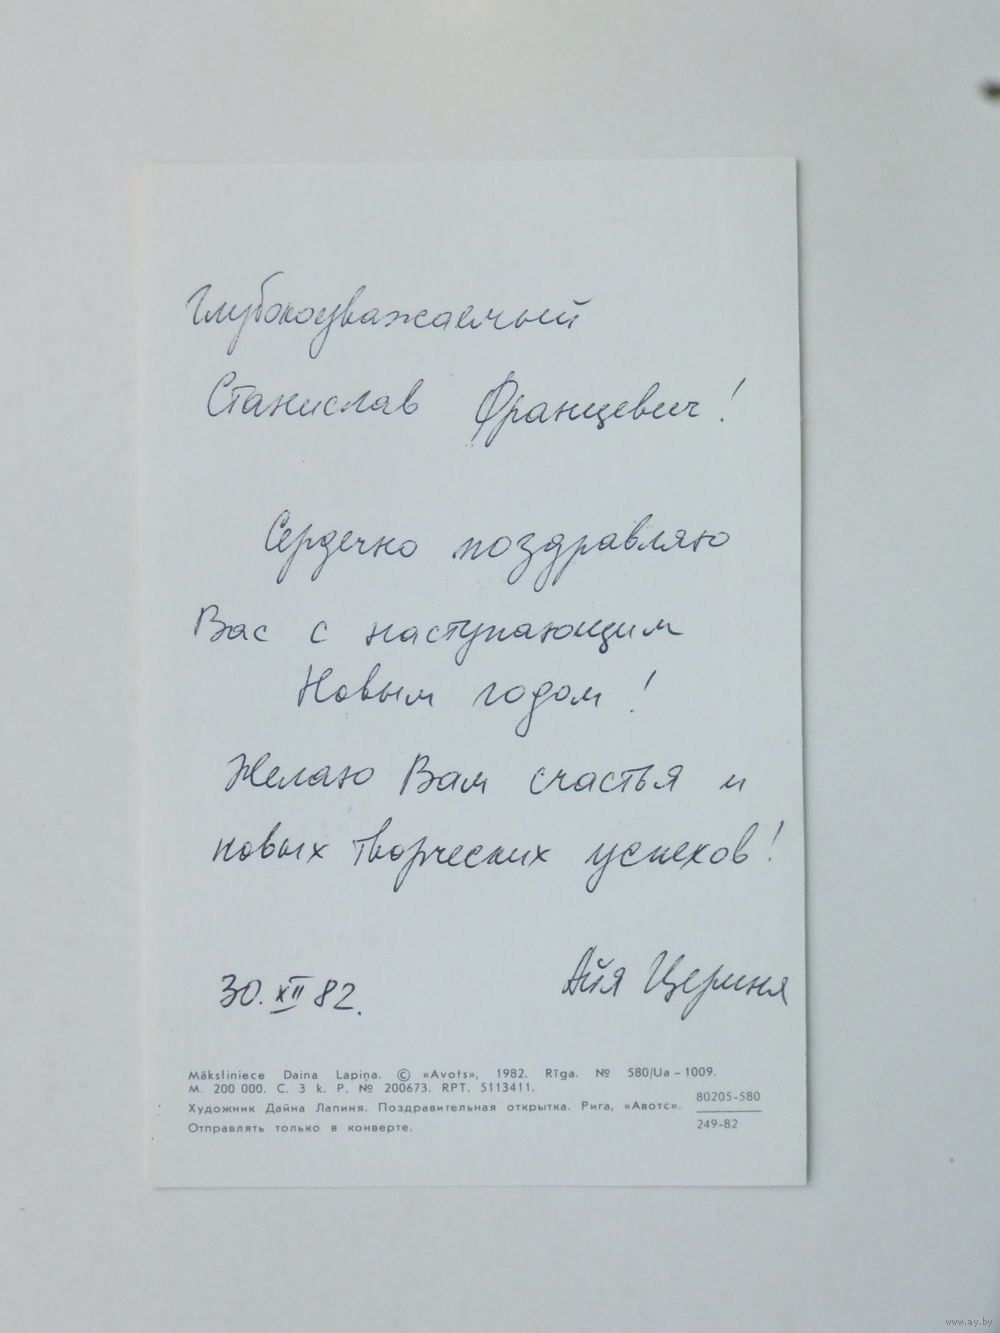 Глубокоуважаемый
Станислав Францевич!
Сердечно поздравляю
Вас с наступающим
Новым годом!
Желаю Вам счастья и
новых творческих успехов!
30. XII 82.
Айя Цериня
Māksliniece Daina Lapiņa. © «Avots», 1982. Rīga. № 580/Ua – 1009.
м. 200 000. С. 3 k. P. № 200673. RPT. 5113411.
Художник Дайна Лапиня. Поздравительная открытка. Рига, «Авотс».
Отправлять только в конверте.
80205-580
249-82
www.ay.by